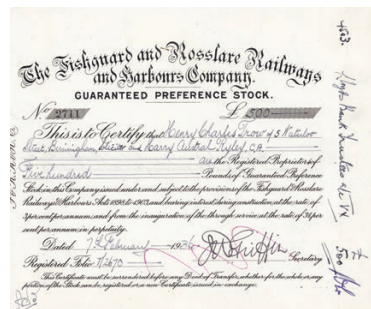 The Fishguard and Rosslare Railways
and Harbours Company.
GUARANTEED PREFERENCE STOCK.
No 2711 £ 500
This is to Certify that Henry Charles Trow of 3 Waterloo
Street, Birmingham, and Harry Austral Ryley, C.A.
are the Registered Proprietors of
Five hundred Pounds of Guaranteed Preference
Stock in the Company issued under and subject to the provisions of the Fishguard & Rosslare
Railways & Harbours Acts 1893 to 1903, and bearing interest during construction, at the rate of
3 per cent per annum; and from the inauguration of the through service at the rate of 3½ per
cent per annum in perpetuity.
Dated 7th February 1936
Secretary
Registered Folio
This Certificate must be surrendered before any Deed of Transfer, whether for the whole or any
portion of the Stock can be registered or a new Certificate issued in exchange.